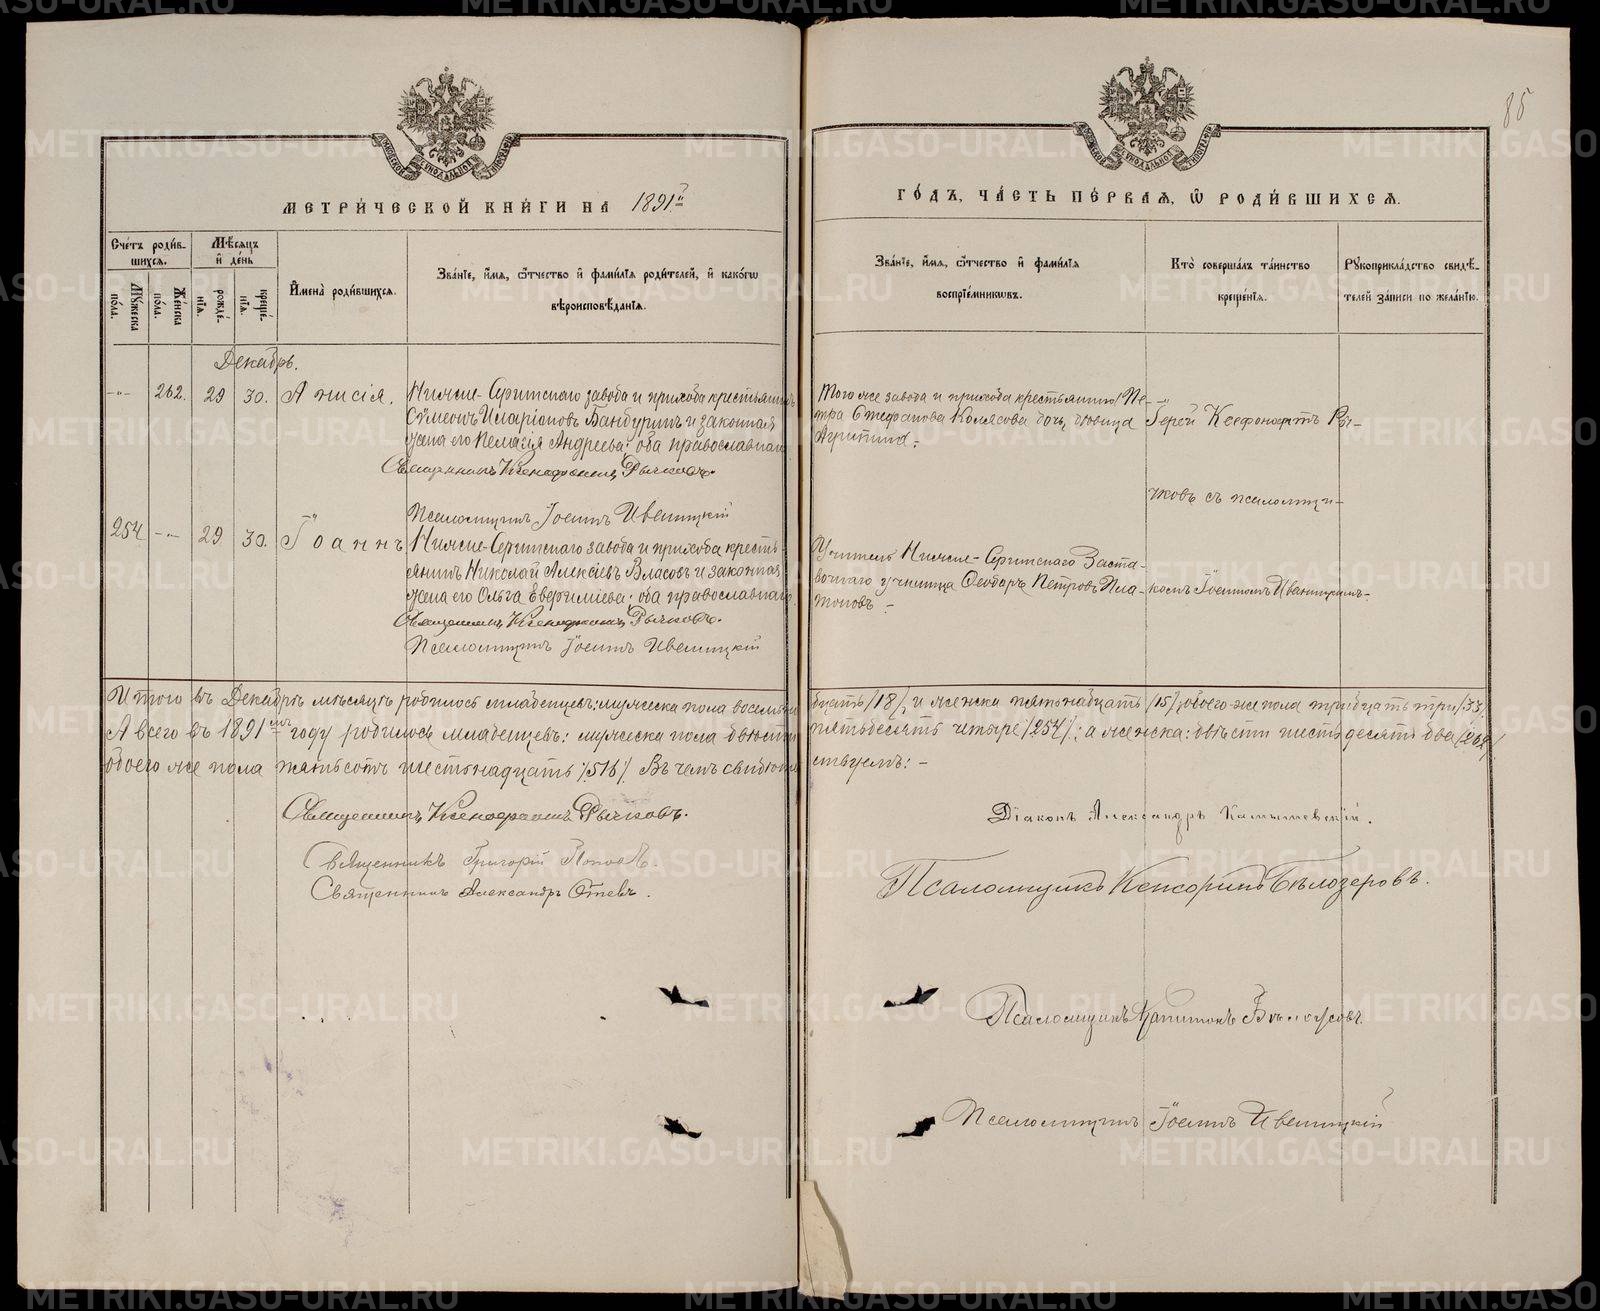 85
МЕТРИ́ЧЕСКОЙ КНИ́ГИ НА 1891й
ГО́ДЪ, ЧА́СТЬ ПЕ́РВАЯ, Ѡ РОДИ́ВШИХСЯ.
Сче́тъ роди́в-
шихсѧ.
Му́жеска
по́ла.
Же́нска
по́ла.
Мѣ́сѧцъ
и҆ де́нь
рожде́-
нїѧ.
креще́-
нїѧ.
И҆мена̀ роди́вшихсѧ.
Зва́нїе, и҆́мѧ, ѻ҆́тчество и҆ фами́лїѧ роди́телей, и҆ како́гѡ
вѣроисповѣ́данїѧ.
Зва́нїе, и҆́мѧ, ѻ҆́тчество и҆ фами́лїѧ
воспрїе́мникѡвъ.
Кто̀ соверша́лъ та́инство
креще́нїѧ.
Рꙋкоприкла́дство свидѣ́-
телей за́писи по жела́нїю.
Декабрь.
-„- 262. 29 30. Анисія.
Нижне-Сергинскаго завода и прихода крестьянинъ
Сѵмеонъ Иларіоновъ Бандуринъ и законная
жена его Пелагія Андреева; оба православнаго
Священникъ Ксенофонтъ Рычковъ.
Псаломщикъ Іоаннъ Ивеницкій
Того же завода и прихода крестьянина Пе-
тра Стефанова Колясова дочь, девица
Агрипина.
Іерей Ксенофонтъ Ры-
чковъ съ псаломщи-
254 -„- 29 30. Іоаннъ
Нижне-Сергинскаго завода и прихода кресть-
янинъ Николай Алексіевъ Власовъ и законная
жена его Ольга Евѳиміева; оба православнаго
Священникъ Ксенофонтъ Рычковъ.
Псаломщикъ Іоаннъ Ивеницкій
Учитель Нижне-Сергинскаго Заста-
вочнаго училища Ѳеодоръ Петровъ Пла-
тоновъ -
комъ Іоанномъ Ивеницкимъ-
Итого въ Декабрѣ мѣсяцѣ родилось младенцевъ: мужеска пола восемнадцать /18/, и женска пятнадцать /15/, обоего же пола тридцать три /33/.
А всего въ 1891мъ году родилось младенцевъ: мужеска пола двѣсти пятьдесятъ четыре /254/; а женска: двѣсти шестьдесятъ два /262/
обоего же пола пятьсотъ шестьнадцать /516/. Въ чемъ свидѣтельствуемъ: -
Священникъ Ксенофонтъ Рычковъ.
Священникъ Григорій Поповъ.
Священникъ Александръ Отевъ.
Діаконъ Александръ Камышевскій.
Псаломщикъ Кенсоринъ Бѣлозеровъ.
Псаломщикъ Капитонъ
Псаломщикъ Іоаннъ Ивеницкій
METRIKI.GASO-URAL.RU